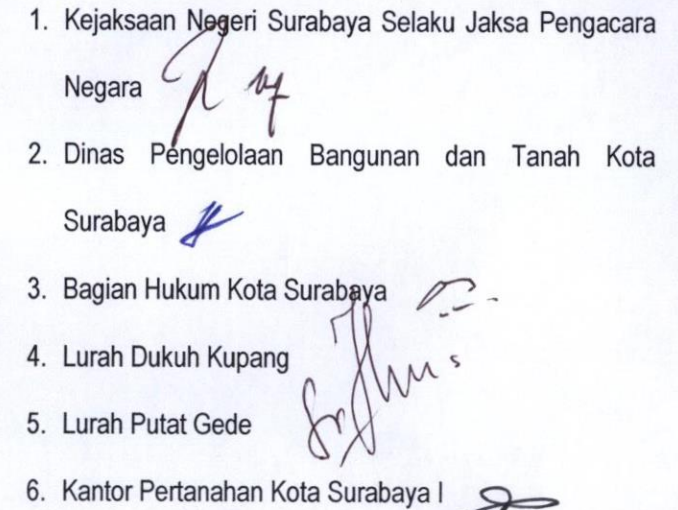 1. Kejaksaan Negeri Surabaya Selaku Jaksa Pengacara
Negara
2. Dinas Pengelolaan Bangunan dan Tanah Kota
Surabaya
3. Bagian Hukum Kota Surabaya
4. Lurah Dukuh Kupang
5. Lurah Putat Gede
6. Kantor Pertanahan Kota Surabaya I